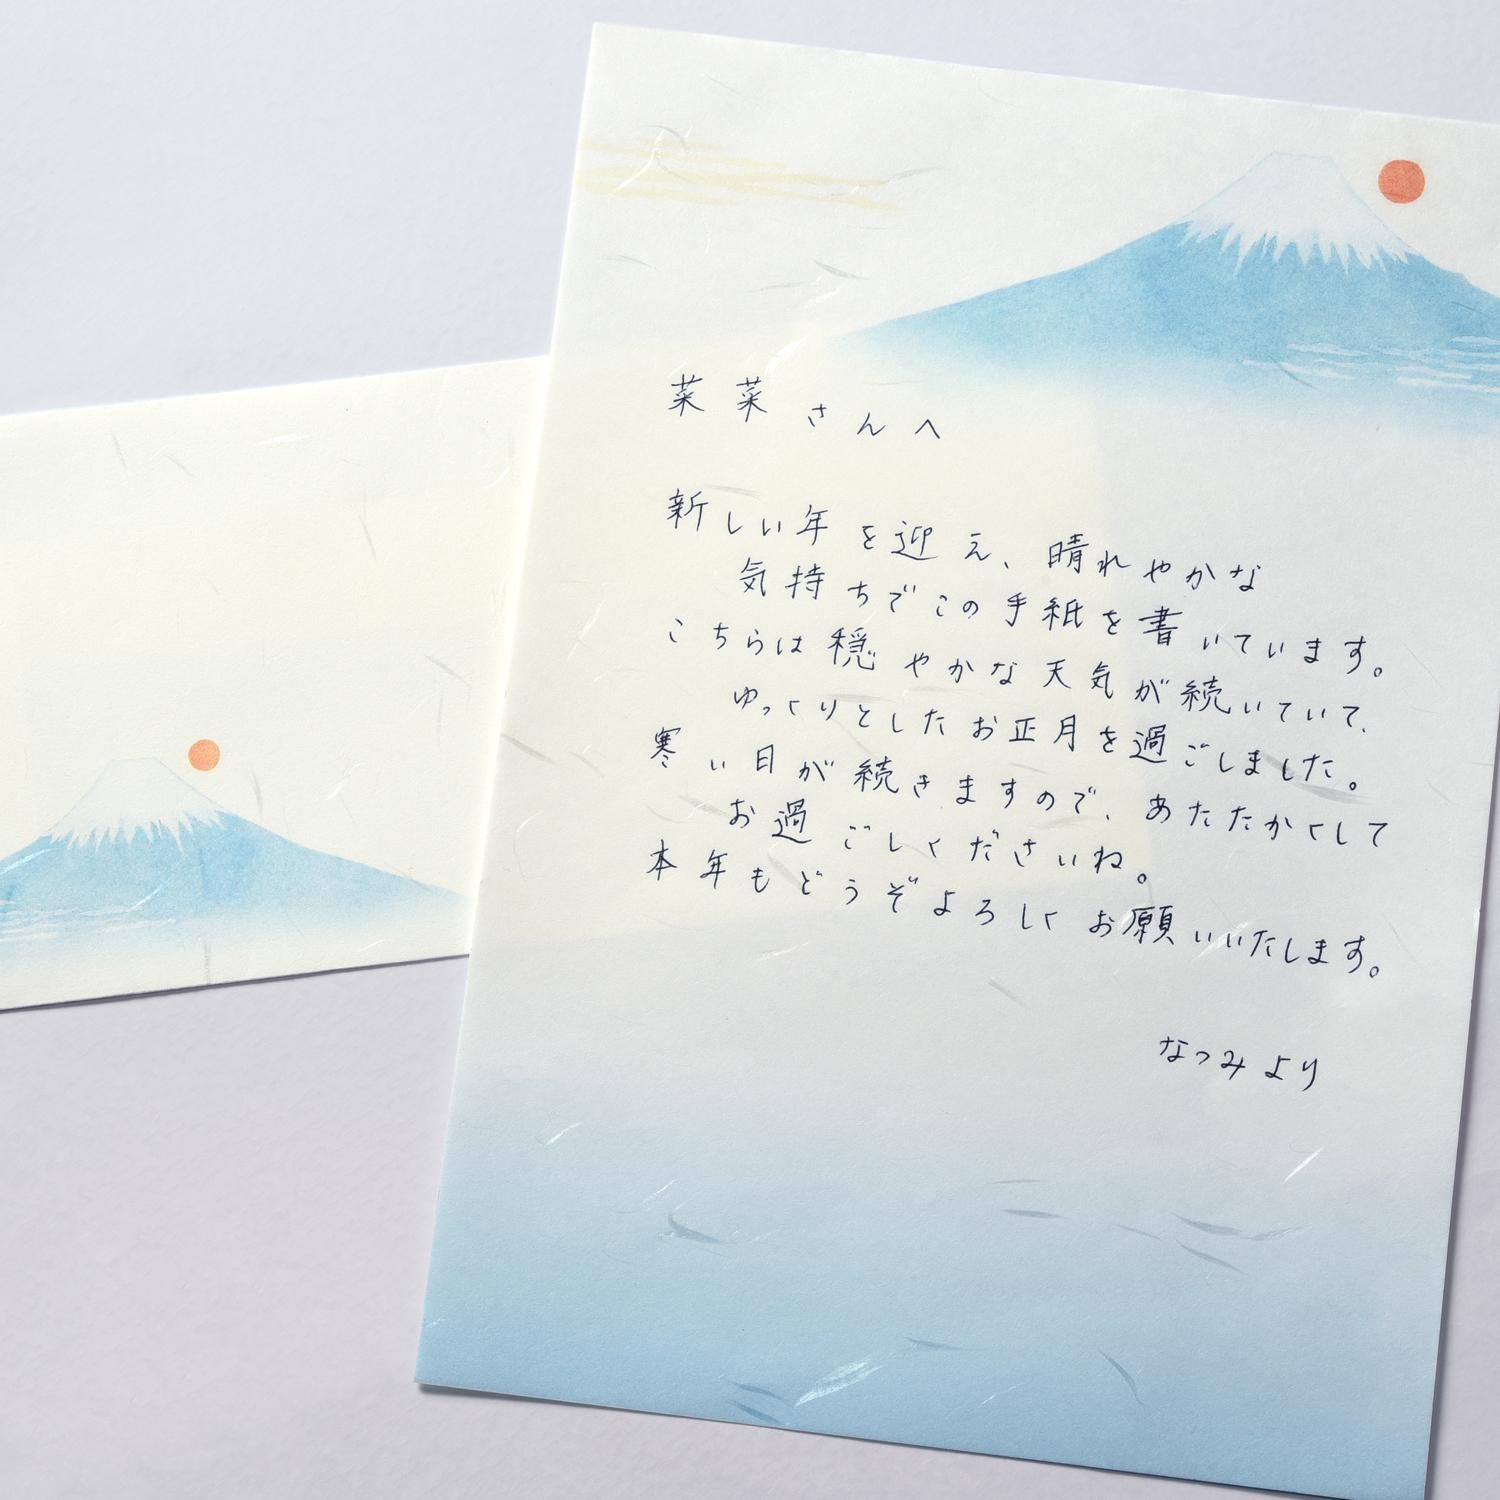 菜菜さんへ
新しい年を迎え、晴れやかな
気持ちでこの手紙を書いています。
こちらは穏やかな天気が続いていて、
ゆっくりとしたお正月を過ごしました。
寒い日が続きますので、あたたかくして
お過ごしくださいね。
本年もどうぞよろしくお願いいたします。
なつみより